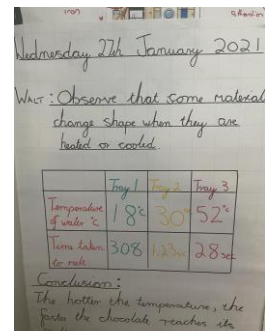 iron
Wednesday 27th January 2021
WALT: Observe that some material
change shape when they are
heated or cooled.
Tray 1 Tray 2 Tray 3
Temperature of water °C 18°c 30° 52°c
Time taken to melt 308 1.23sec 28sec
Conclusion:
The hotter the temperature, the
faste the chocolate reaches its